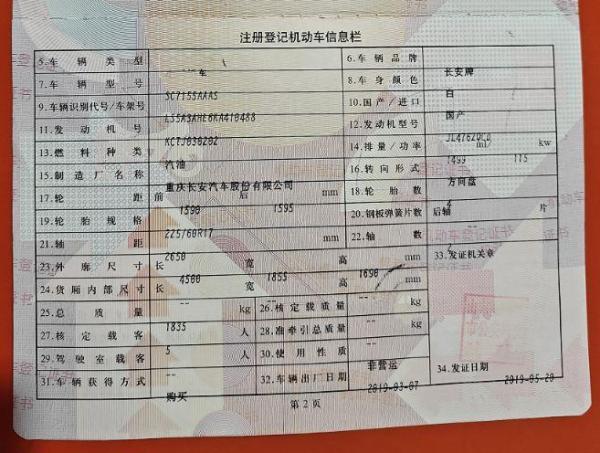 注册登记机动车信息栏
5.车辆类型 车 6.车辆品牌 长安牌
7.车辆型号 SC7155AAAS 8.车身颜色 白
9.车辆识别代号/车架号 10.国产/进口 国产
11.发动机号 12.发动机型号
13.燃料种类 汽油 14.排量/功率 1499 ml/ 115 kw
15.制造厂名称 重庆长安汽车股份有限公司 16.转向形式 方向盘
17.轮距 前 1590 后 1595 mm 18.轮胎数 4
19.轮胎规格 225/60R17 20.钢板弹簧片数 后轴 片
21.轴距 2650 mm 22.轴数 2
23.外廓尺寸 长 4500 宽 1855 高 1690 mm 33.发证机关章
24.货厢内部尺寸 长 -- 宽 -- 高 -- mm
25.总质量 1835 kg 26.核定载质量 -- kg
27.核定载客 5 人 28.准牵引总质量 -- kg
29.驾驶室载客 -- 人 30.使用性质 非营运
31.车辆获得方式 购买 32.车辆出厂日期 2019-03-07 34.发证日期 2019-05-20
第2页